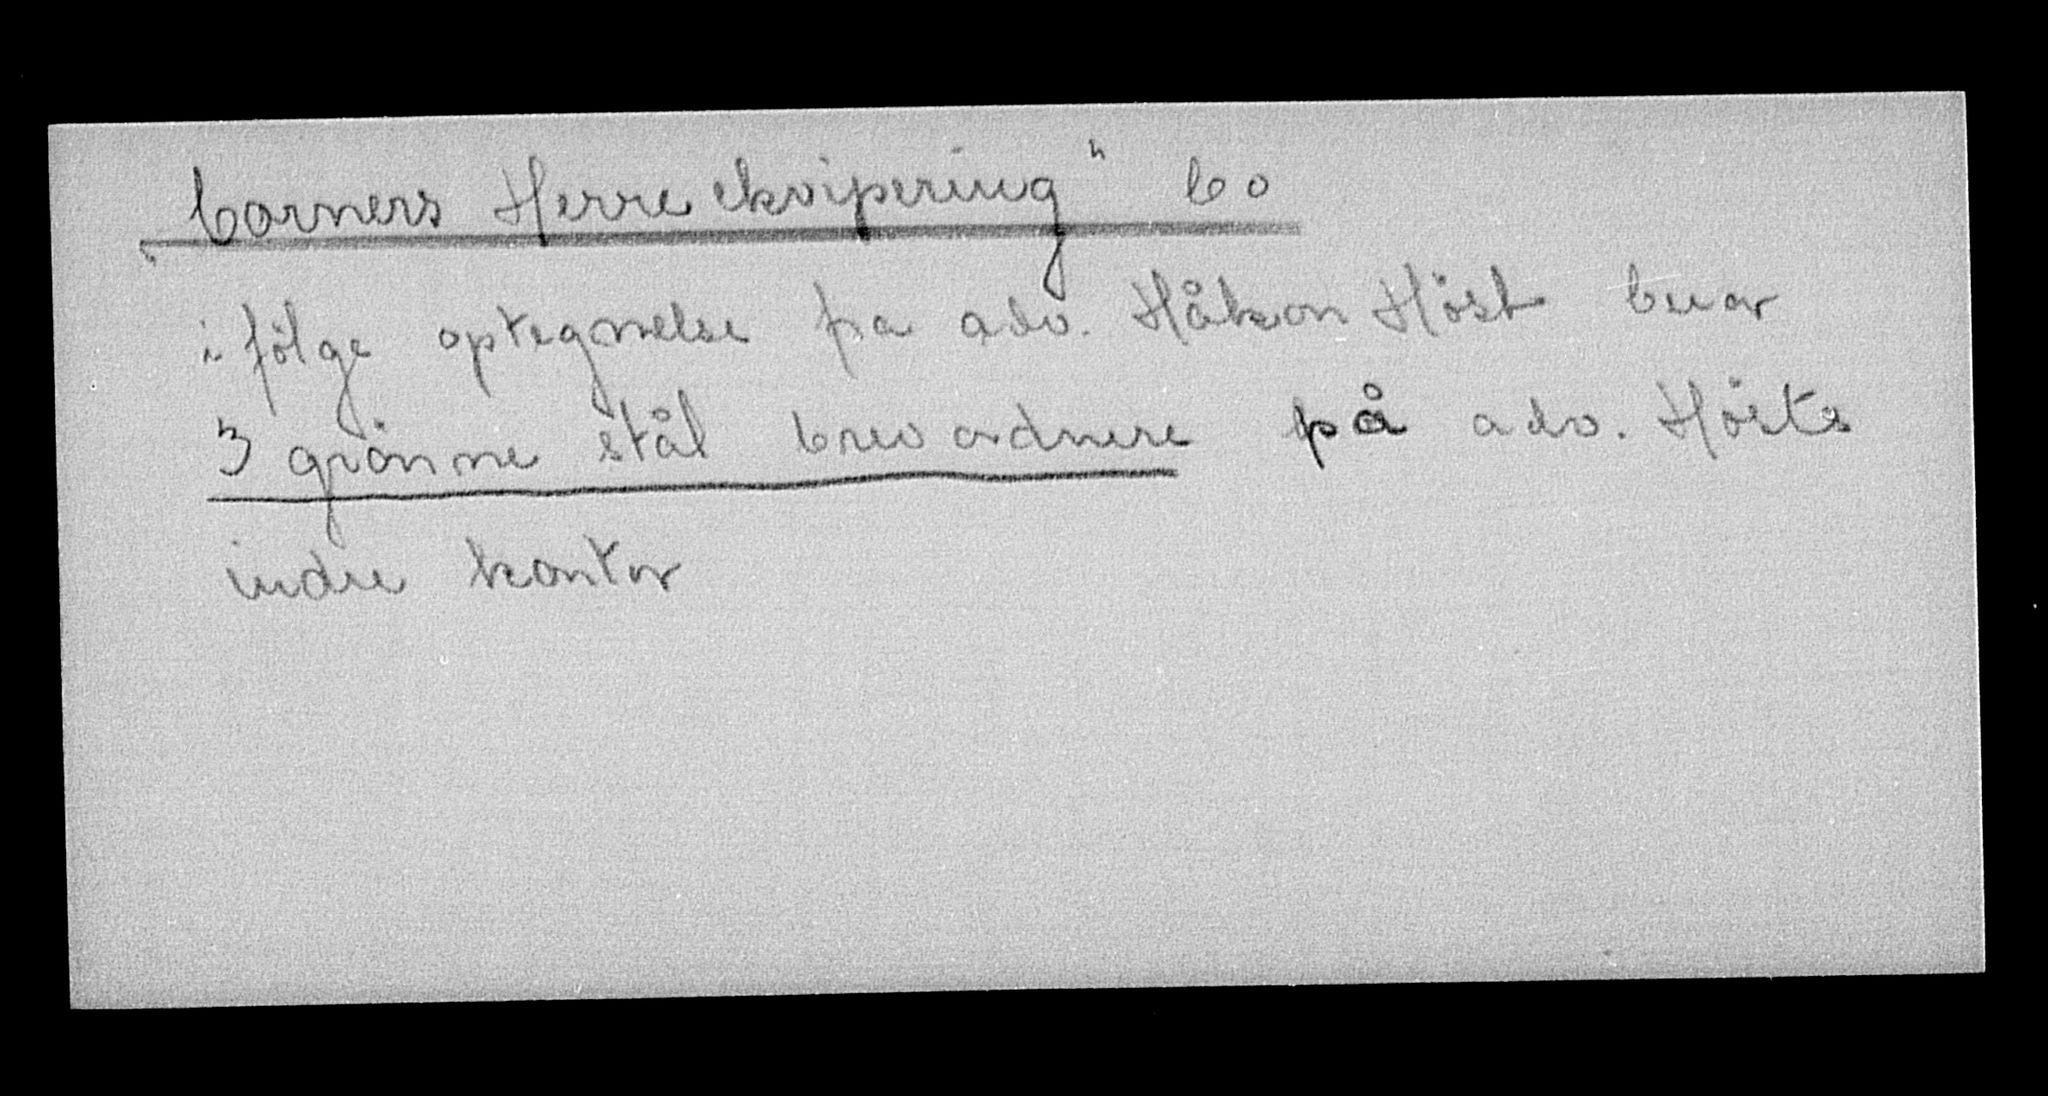 „Corners Herreekvipering" bo
ifölge optegnelse fra adv. Håkon Höst beror
3 grönne stål brevordnere på adv. Hösts
indre kontor